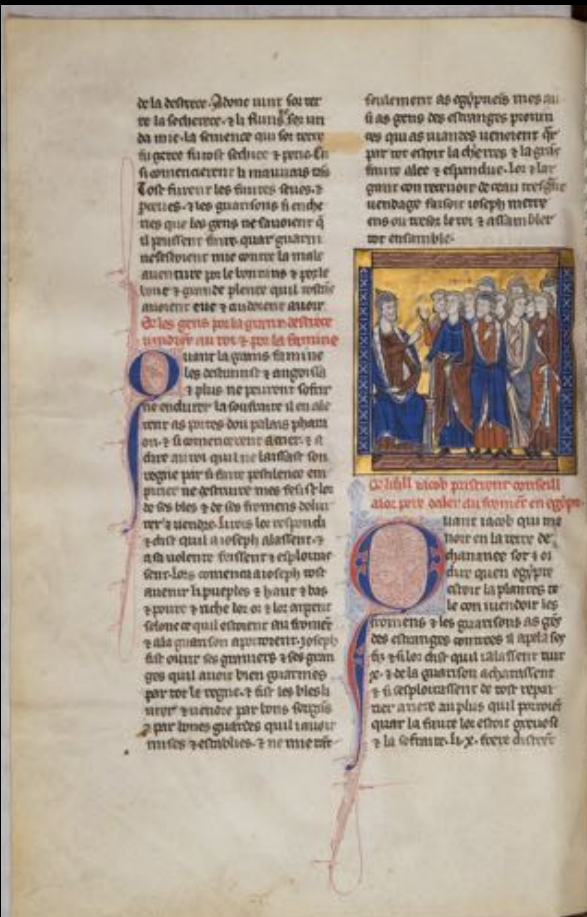 de la destrece. Adonc vint sor ter
re la secherece. & li fluns sor un
da mie. la semence qui sor terre
fu getee fu tost sechiee & perie. En
si comencierent li mauvais tens
Tost furent les faintes
les guarisons si enche
ries que les gens ne savoient q
il peussent faire. quar guarni
nestoient mie contre la male
aventure por le lonc tans & por le
bone & grande plente quil tostens
avoient eue & cuidoient avoir.
De les gens por la grant destrece
vindrent au roi & por la famine
Quant la grans famine
les destrainst & angoissa
& plus ne peurent sofrir
ne endurer la soufraite il en ale
rent as portes dou palais phara
on. & si comencerent a crier. & a
dire au roi quil ne laissast son
regne par si faite pestilence em
pirier ne destruire mes feist lor
de ses bles & de ses fromens deliv
rer a vendre. Li rois lor respondi
& dist quil a ioseph alassent. &
a sa volente feissent & esploitas
sent. Lors comenca a ioseph tost
avenir li pueples & haut & bas
& povre & riche lor or & lor argent
selonc ce quil estoient au froment
& a la guarison aportoient. Joseph
fist ovrir ses greniers & ses gran
ges quil avoit bien guarnies
par tot le regne. & fist les bles li
vrer & vendre par bons
& par bones guardes quil i avoit
mises & establies. & ne mie tant
seulement as egypciens mes au
si as gens des estranges provin
ces qui as viandes venoient qr
par tot estoit la chertes & la grans
faute alee & espandue. Lor & lar
gent con recevoit de ceau
vendage faisoit ioseph metre
ens ou tresor le roi & assambler
tot ensamble.
De li fill iacob pristrent conseill
a lor pere daler au froment en egypte
Quant iacob qui ma
noit en la terre de
chananee sot & oi
dire quen egypte
estoit la plantes &
le con vendoit les
fromens & les guarisons as gens
des estranges contrees il apela ses
fiz & si lor dist quil i alassent tuit
.x. & de la guarison achatassent
& si sesploitassent de tost repai
rier arriere au plus quil porroient
quar la faute lor estoit greveuse
& la sofraite. Li .x. frere distrent